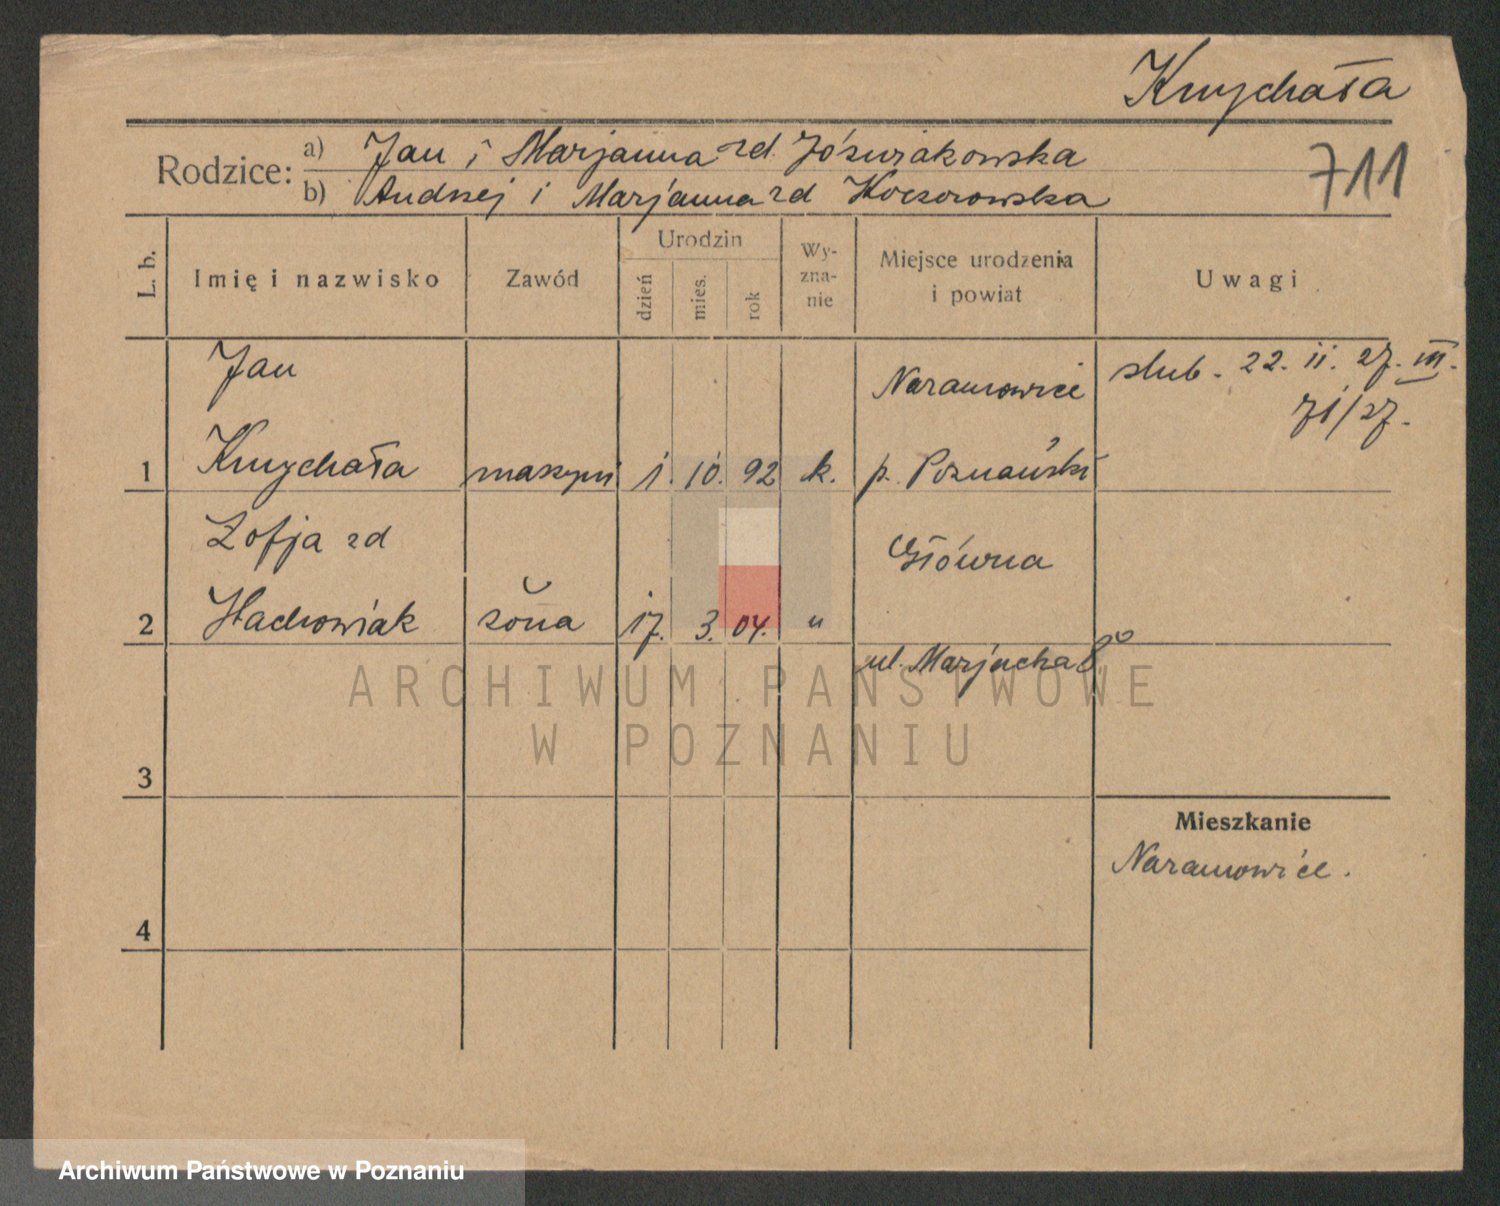 Knychała
Rodzice: a) Jan i Marjanna zd. Józwiakowska
b) Andrzej i Marjanna zd Koczorowska
711
L. b.
Imię i nazwisko
Zawód
Urodzin
dzień
mies.
rok
Wy-
zna-
nie
Miejsce urodzenia
i powiat
Uwagi
Jan
Naramowice
slub. 22. ii. 27. III.
71/27.
1 Knychała maszyni 1. 10. 92 k. p. Poznański
Zofja zd
Główna
2 żona 17. 3. 04. "
ul. Marjacka 8
3
Mieszkanie
Naramowice.
4
ARCHIWUM PAŃSTWOWE
W POZNANIU
Archiwum Państwowe w Poznaniu